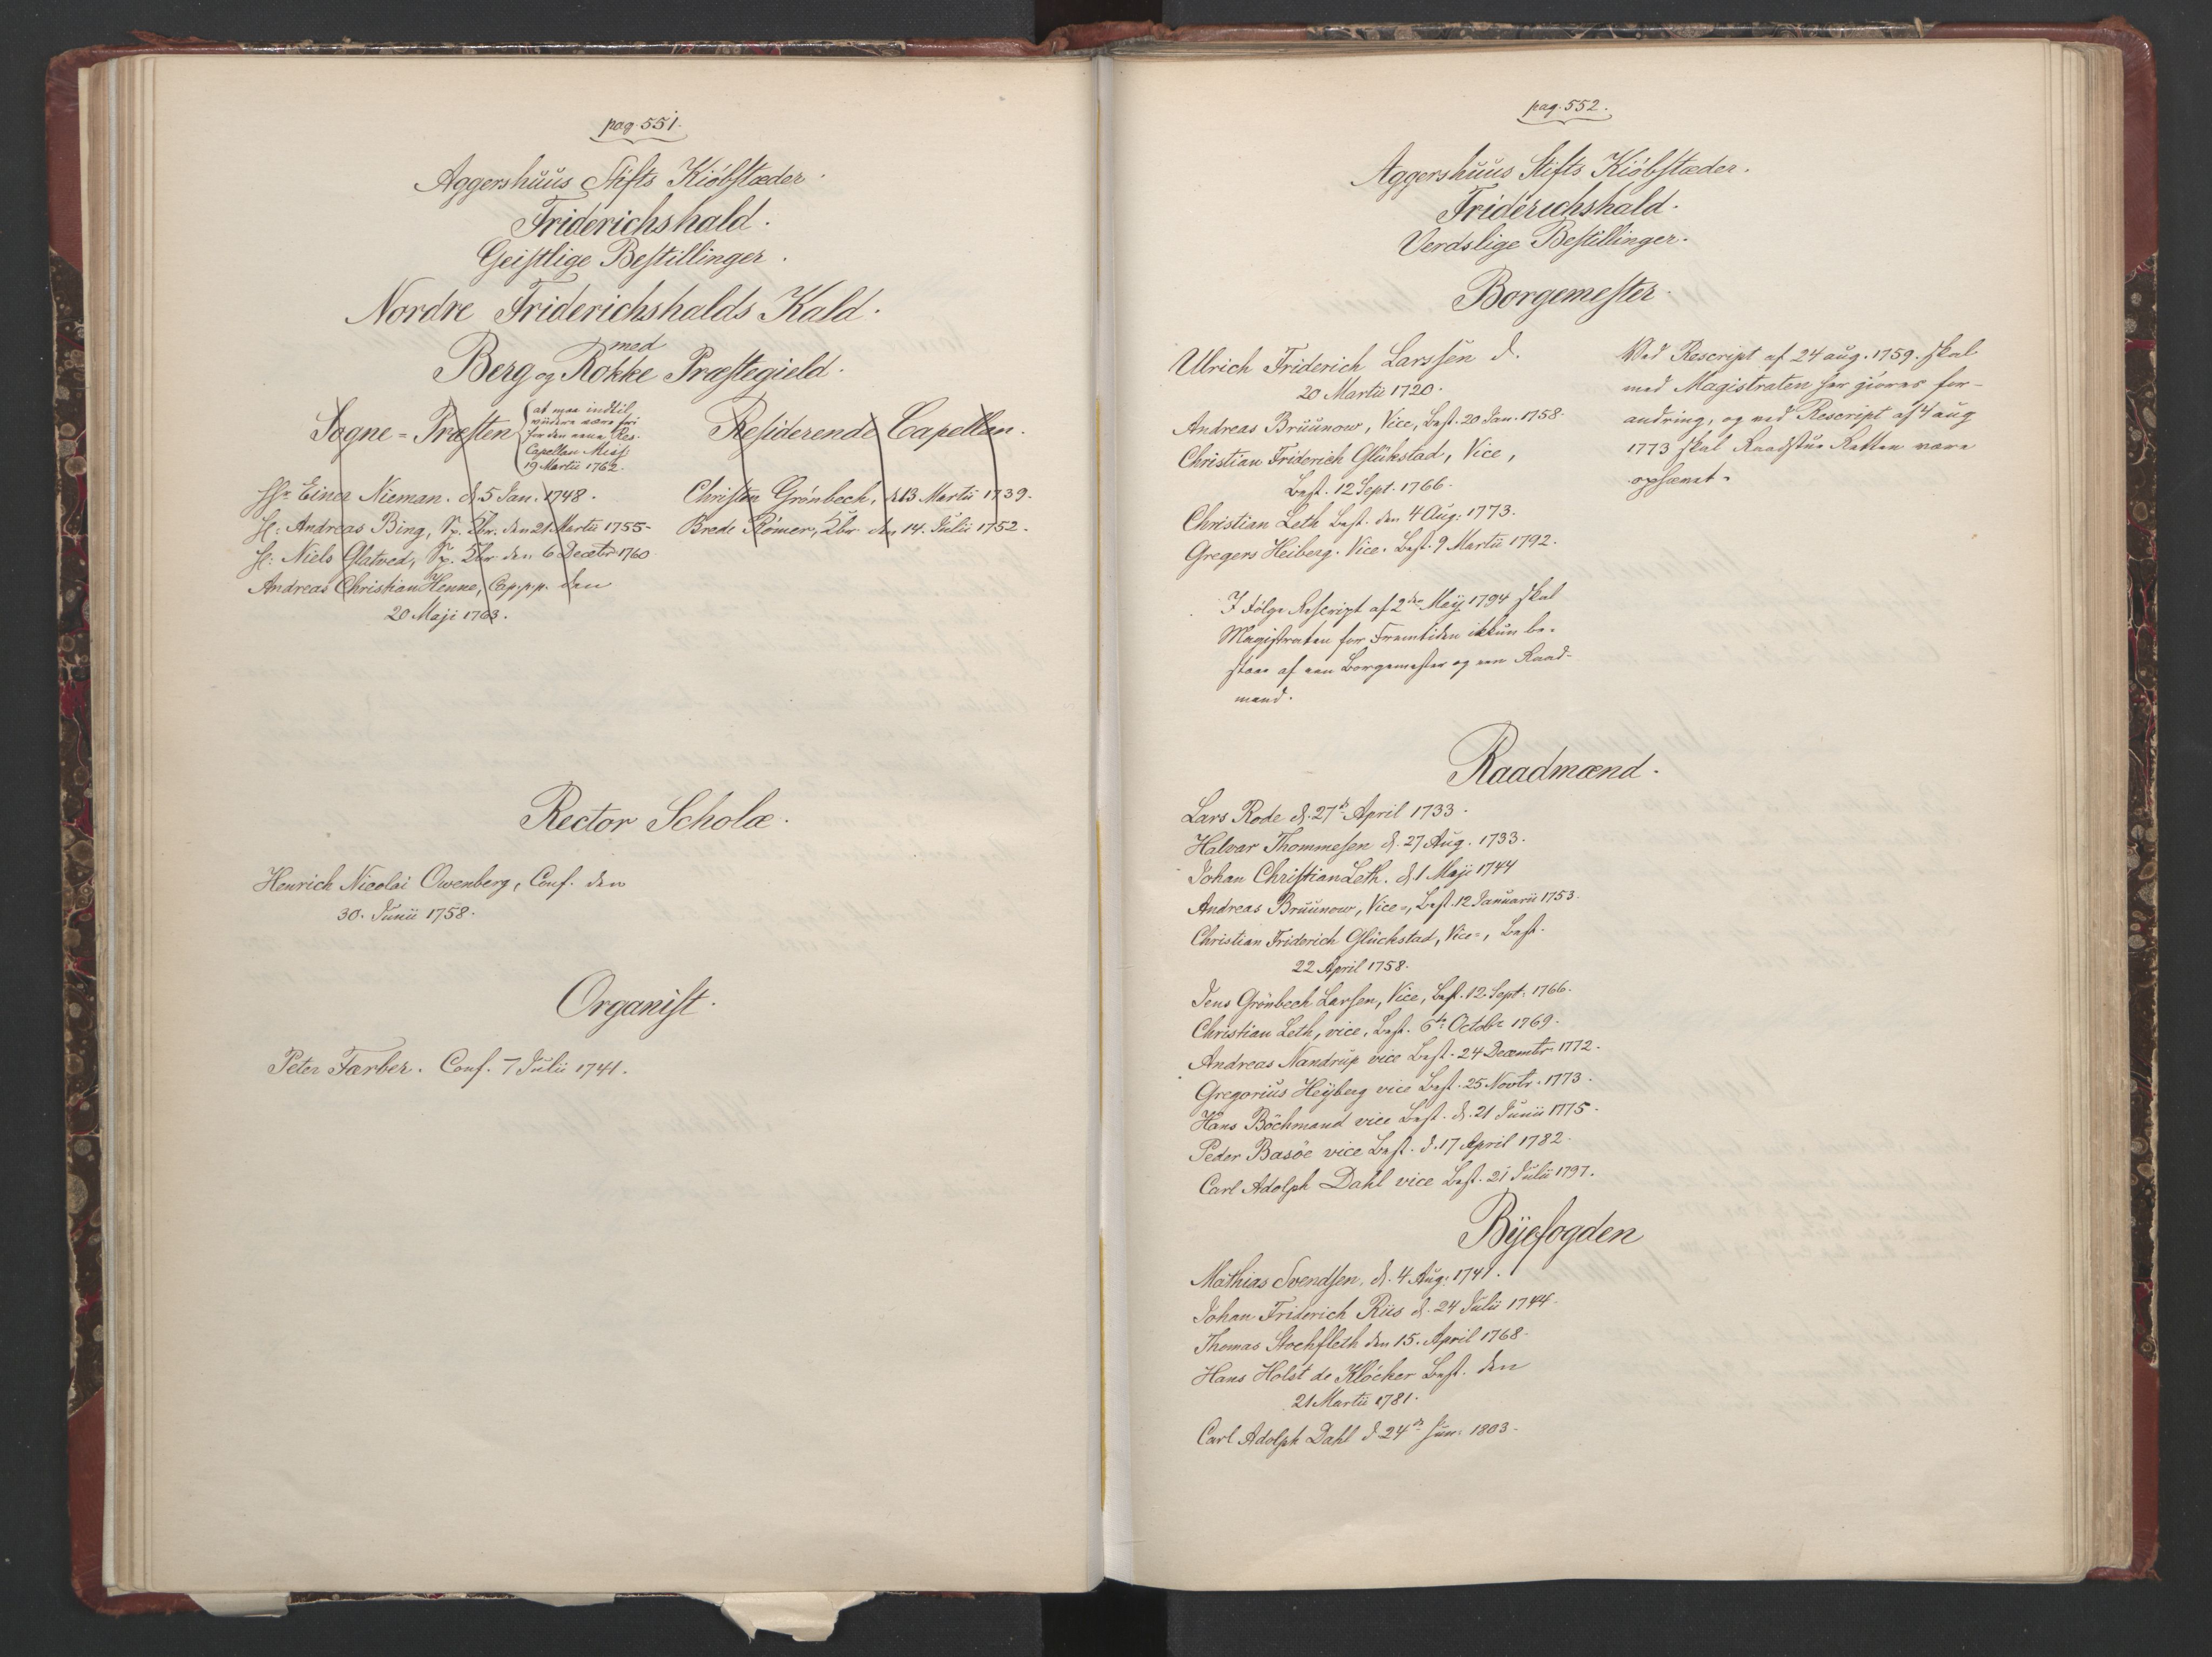 pag. 551.
Aggershuus Stifts Kiöbstæder.
Friderichshald.
Geistlige Bestillinger.
Nordre Friderichshalds Kald.
med
Berg og Rokke Præstegield.
Sogne-Præsten
at maa indtil
videre være fri
for den eene Res.
Capellan Miss:
19 Martii 1762.
Hr. Einer Nieman. d. 5 Jan. 1748.
H: Andreas Bing, Sp. Xbr. den 21 Martii 1755-
H: Niels Glatved, Sp. Xbr. den 6 Decebr 1760
Andreas Christian Henne, Cap. p. p. den
20 Maji 1763.
Residerende Capellan.
Christen Grönbech, d. 13 Martii 1739.
Brede Römer, Xbr. den 14. Julii 1752.
Rector Scholæ.
Henrich Nicolai Owenberg, Conf. den
30. Junii 1758.
Organist.
Peter Farber. Conf. 7 Julii 1741.
pag. 552.
Aggershuus Stifts Kiöbstæder.
Friderichshald.
Verdslige Bestillinger.
Borgemester.
Ulrich Friderich Larssen d.
20 Martii 1720.
Andreas Bruunow, Vice, Best. 20 Jan. 1758.
Christian Friderich Glükstad, Vice,
Best. 12 Sept. 1766.
Christian Leth Best. den 4 Aug: 1773.
Gregers Heiberg. Vice. Best. 9 Martii 1792.
I Følge Rescript af 2den Maÿ 1794 skal
Magistraten for Fremtiden ikkun be-
staae af een Borgemester og een Raad-
mand.
Ved Rescript af 24 aug. 1759. skal
med Magistraten her giøres for-
andring, og ved Rescript af 4 aug
1773 skal Raadstue Retten være
ophævet.
Raadmænd.
Lars Rode d. 27de April 1733.
Halvar Thommesen d. 27 Aug. 1733.
Johan Christian Leth. d. 1 Maji 1744
Andreas Bruunow, Vice-, Best. 12 Januarii 1753.
Christian Friderich Glückstad, Vice-, Best.
22 April 1758.
Jens Grönbech Larsen, Vice, Best. 12 Sept: 1766.
Christian Leth, vice, Best. 6te Octobr 1769.
Andreas Nandrup vice Best. 24 Decembr. 1772.
Gregorius Heÿberg vice Best. 25 Novbr. 1773.
Hans Böchmand vice Best. d. 21 Junii 1775.
Peder Basöe vice Best. d. 17 April 1782.
Carl Adolph Dahl vice Best. 21 Julii 1797.
Bÿefogden
Mathias Svendsen, d. 4 Aug: 1741.
Johan Friderich Riis d. 24 Julii 1744.
Thomas Stochfleth den 15. April 1768.
Hans Holst de Klöcker Best. den
21 Martii 1781.
Carl Adolph Dahl d 24de Jun: 1803.